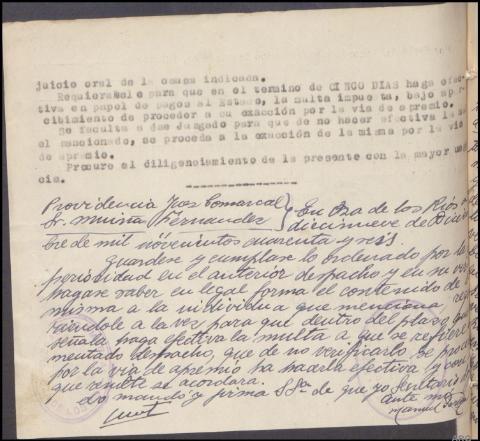 juicio oral de la causa indicada.
Requierasele para que en el termino de CINCO DIAS haga efec-
tiva en papel de pagos al Estado, la multa impuesta, bajo aper-
cibimiento de proceder a su exacción por la via de apremio.
Se faculta a ese Juzgado para que de no hacer efectiva la
el sancionado, se proceda a la exacción de la misma por la via
de apremio.
Procure el diligenciamiento de la presente con la mayor
cia.
Providencia Juez Comarcal
Sr. Fernandez
En Oza de los Rios a
diecinueve de
bre de mil novecientos cuarenta y seis.
Guardese y cumplase lo ordenado por la
en el anterior despacho y en su
hagase saber en legal forma el contenido de
misma a la individua que menciona,
a la vez para que dentro del plazo que
señala haga efectiva la multa a que se refiere
mentado despacho, que de no verificarlo se
por la via de apremio ha hacerla efectiva y con
que resulte se acordara.
Lo mandó y firma SSª de que yo Secretario
ante mi
Manuel